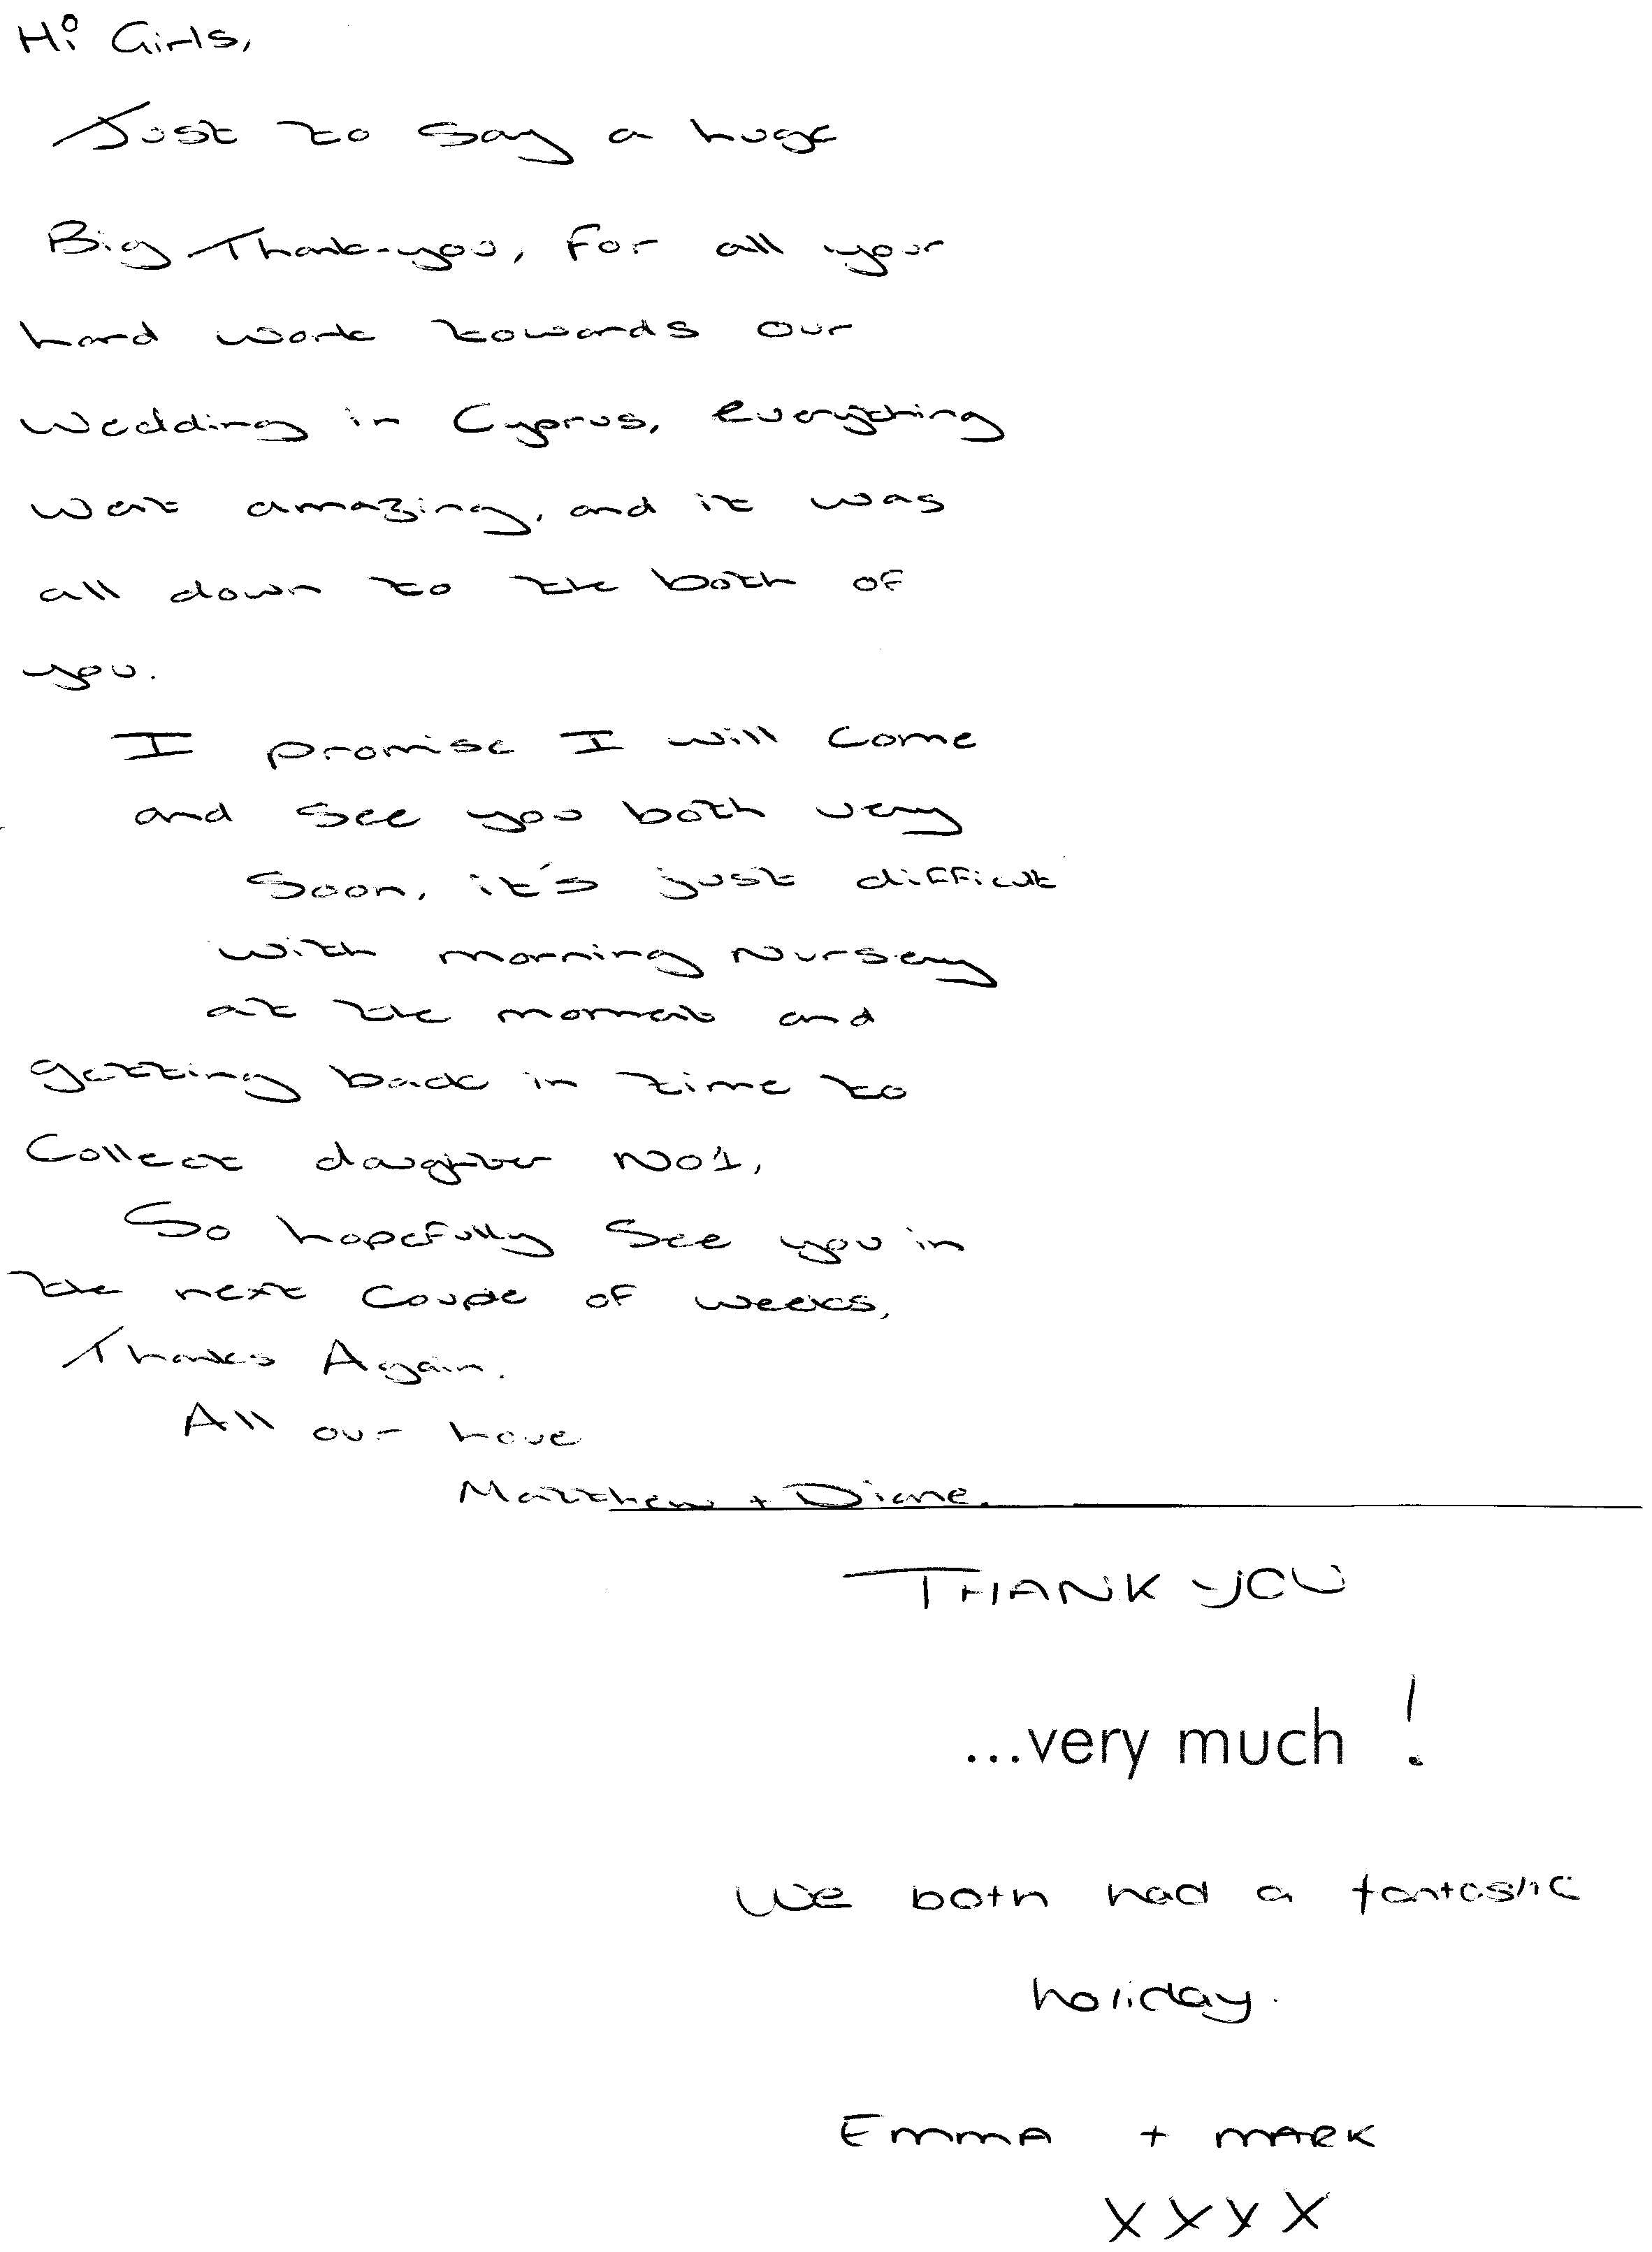 Hi Girls,
Just to say a huge
Big Thank-you, for all your
hard work towards our
Wedding in Cyprus, everything
went amazing, and it was
all down to the both of
you.
I promise I will come
and see you both very
Soon, it's just difficult
with morning Nursery
at the moment and
getting back in time to
Collect daughter No1,
So hopefully see you in
the next couple of weeks,
Thanks Again.
All our Love
Matthew + Diane.
THANK YOU
...very much !
We both had a fantastic
holiday.
Emma + MARK
XXXX